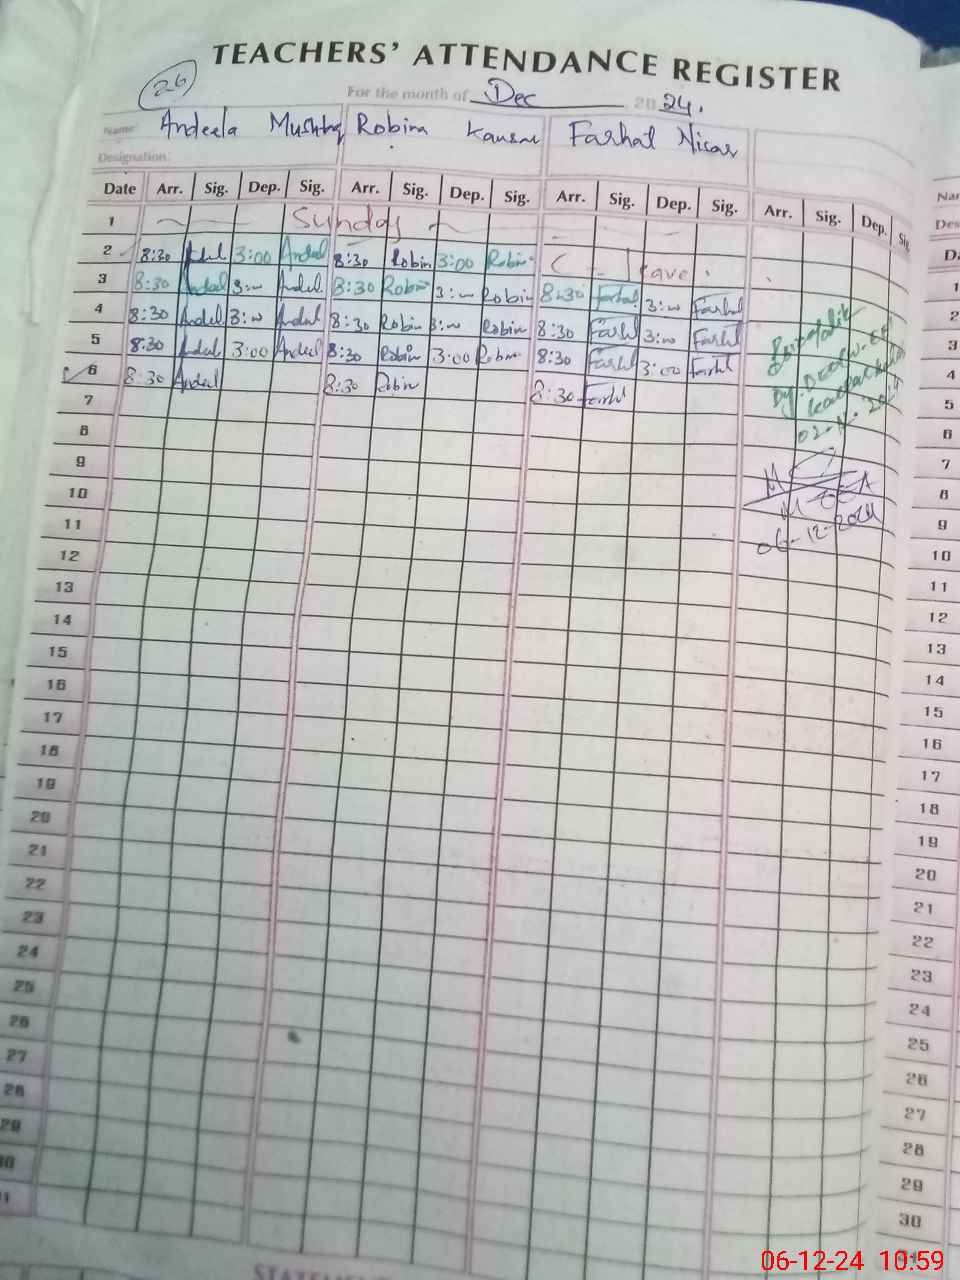 TEACHERS' ATTENDANCE REGISTER
26
For the month of Dec 2024.
Name: Andeela Mushtaq Robina Kausar Farhat Nisar
Designation:
Date Arr. Sig. Dep. Sig. Arr. Sig. Dep. Sig. Arr. Sig. Dep. Sig. Arr. Sig. Dep. Sig
1 Sunday
2 8:30 Andel 3:00 Andeel 8:30 Robin 3:00 Robin C - leave
3 8:30 Andeel 3:00 Andel 8:30 Robin 3:00 Robin 8:30 Farhat 3:00 Farhat
4 8:30 Andel 3:00 Andel 8:30 Robin 3:00 Robin 8:30 Farhat 3:00 Farhat
5 8:30 Andel 3:00 Andeel 8:30 Robin 3:00 Robin 8:30 Farhat 3:00 Farhat
6 8:30 Andeel 8:30 Robin 8:30 Farhat
7
8
9
10
11
12
13
14
15
16
17
18
19
20
21
22
23
24
25
26
27
28
29
30
Dy. DEO
02-12-2024
MEA
06-12-2024
Nar
Des
Da
1
2
3
4
5
6
7
8
9
10
11
12
13
14
15
16
17
18
19
20
21
22
23
24
25
26
27
28
29
30
STATEM
06-12-24 10:59